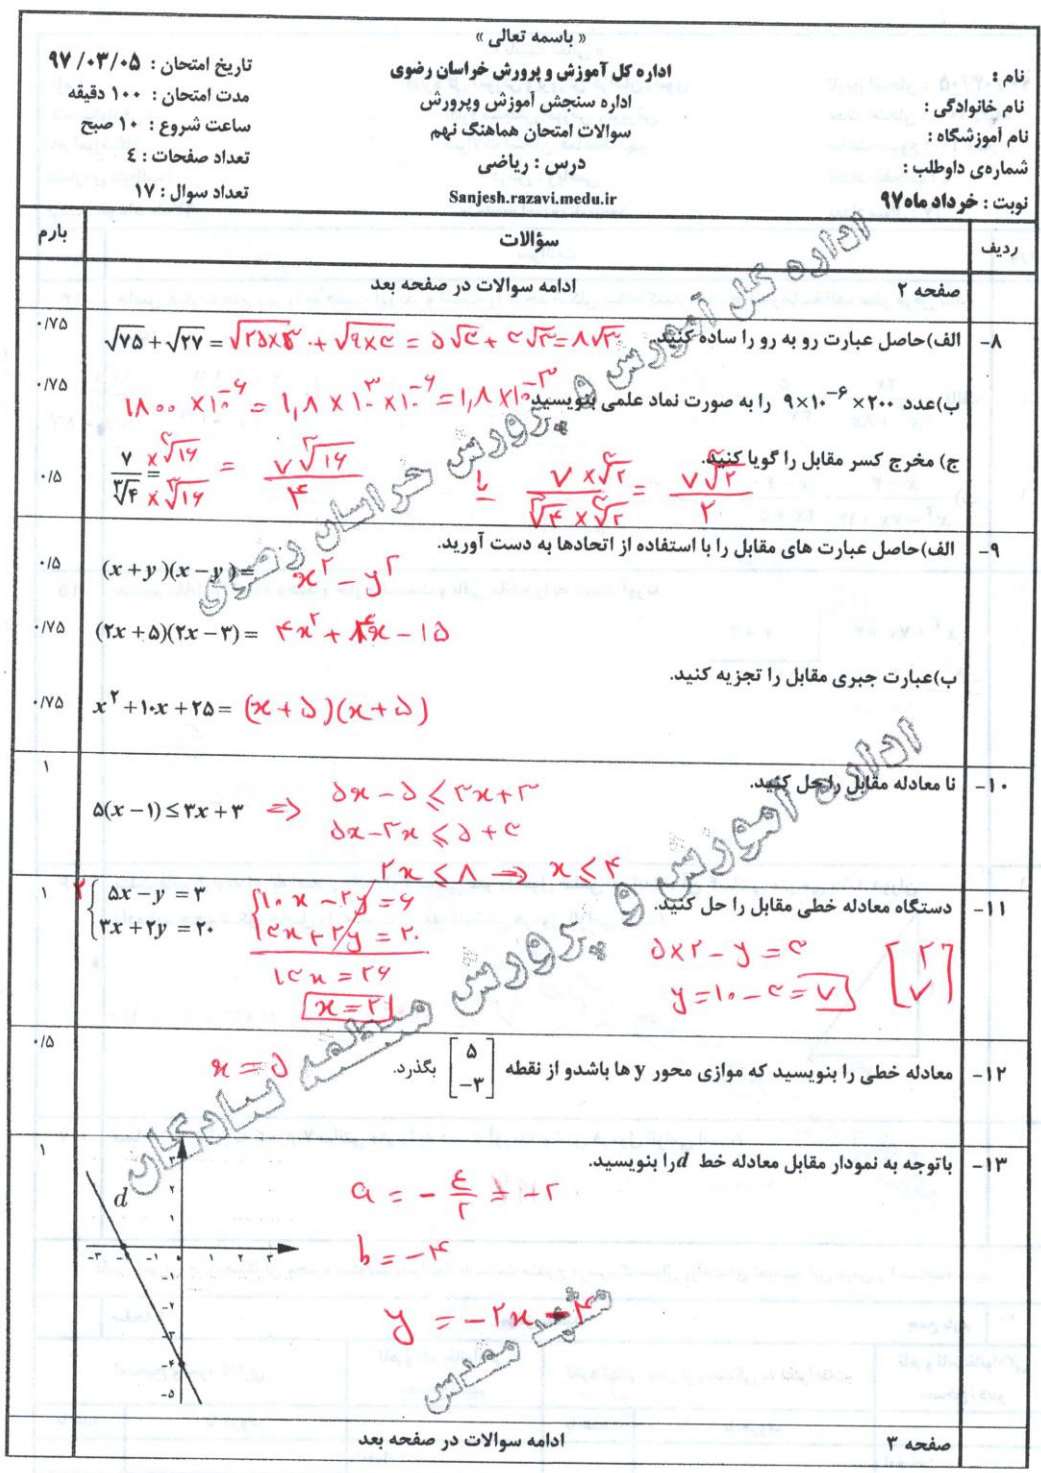 « باسمه تعالی »
اداره کل آموزش و پرورش خراسان رضوی
اداره سنجش آموزش وپرورش
سوالات امتحان هماهنگ نهم
درس : ریاضی
Sanjesh.razavi.medu.ir
نام :
نام خانوادگی :
نام آموزشگاه :
شماره‌ی داوطلب :
نوبت : خرداد ماه ۹۷
تاریخ امتحان : ۹۷/۰۳/۰۵
مدت امتحان : ۱۰۰ دقیقه
ساعت شروع : ۱۰ صبح
تعداد صفحات : ٤
تعداد سوال : ۱۷
ردیف سؤالات بارم
صفحه ۲ ادامه سوالات در صفحه بعد
۸- الف)حاصل عبارت رو به رو را ساده کنید. √۷۵ + √۲۷ = √۲۵×۳ + √۹×۳ = ۵√۳ + ۳√۳ = ۸√۳ ۰/۷۵
ب)عدد ۹×۱۰⁻⁶×۲۰۰ را به صورت نماد علمی بنویسید ۱۸۰۰ ×۱۰⁻⁶ = ۱,۸ × ۱۰³×۱۰⁻⁶ = ۱,۸ ×۱۰⁻³ ۰/۷۵
ج) مخرج کسر مقابل را گویا کنید. ۰/۵
۷/∛۴ × ∛۱۶/∛۱۶ = ۷∛۱۶/۴ یا ۷×∛۲/∛۴×∛۲ = ۷∛۲/۲
۹- الف)حاصل عبارت های مقابل را با استفاده از اتحادها به دست آورید.
(x+y)(x−y)= x² − y² ۰/۵
(۲x+۵)(۲x−۳)= ۴x² + ۴x − ۱۵ ۰/۷۵
ب)عبارت جبری مقابل را تجزیه کنید.
x²+۱۰x+۲۵= (x+۵)(x+۵) ۰/۷۵
۱۰- نا معادله مقابل را حل کنید. ۱
۵(x−۱)≤۳x+۳ ⇒ ۵x−۵ ≤ ۳x+۳
۵x−۳x ≤ ۵+۳
۲x ≤ ۸ ⇒ x ≤ ۴
۱۱- دستگاه معادله خطی مقابل را حل کنید. ۱
۲ { ۵x−y = ۳ { ۱۰x −۲y = ۶
۳x+۲y = ۲۰ ۳x+۲y = ۲۰
۱۳x = ۲۶
x = ۲
۵×۲ − y = ۳
y = ۱۰−۳ = ۷ [۲ ۷]
۱۲- معادله خطی را بنویسید که موازی محور y ها باشدو از نقطه [۵ −۳] بگذرد. x = ۵ ۰/۵
۱۳- باتوجه به نمودار مقابل معادله خط d را بنویسید. ۱
a = − ٤/۲ = −۲
b = −۴
y = −۲x −۴
d
۳
۲
۱
−۳ −۲ −۱ ۰ ۱ ۲ ۳
−۱
−۲
−۳
−۴
−۵
صفحه ۳ ادامه سوالات در صفحه بعد
اداره کل آموزش و پرورش خراسان رضوی
اداره آموزش و پرورش منطقه تبادکان
مشهد مقدس